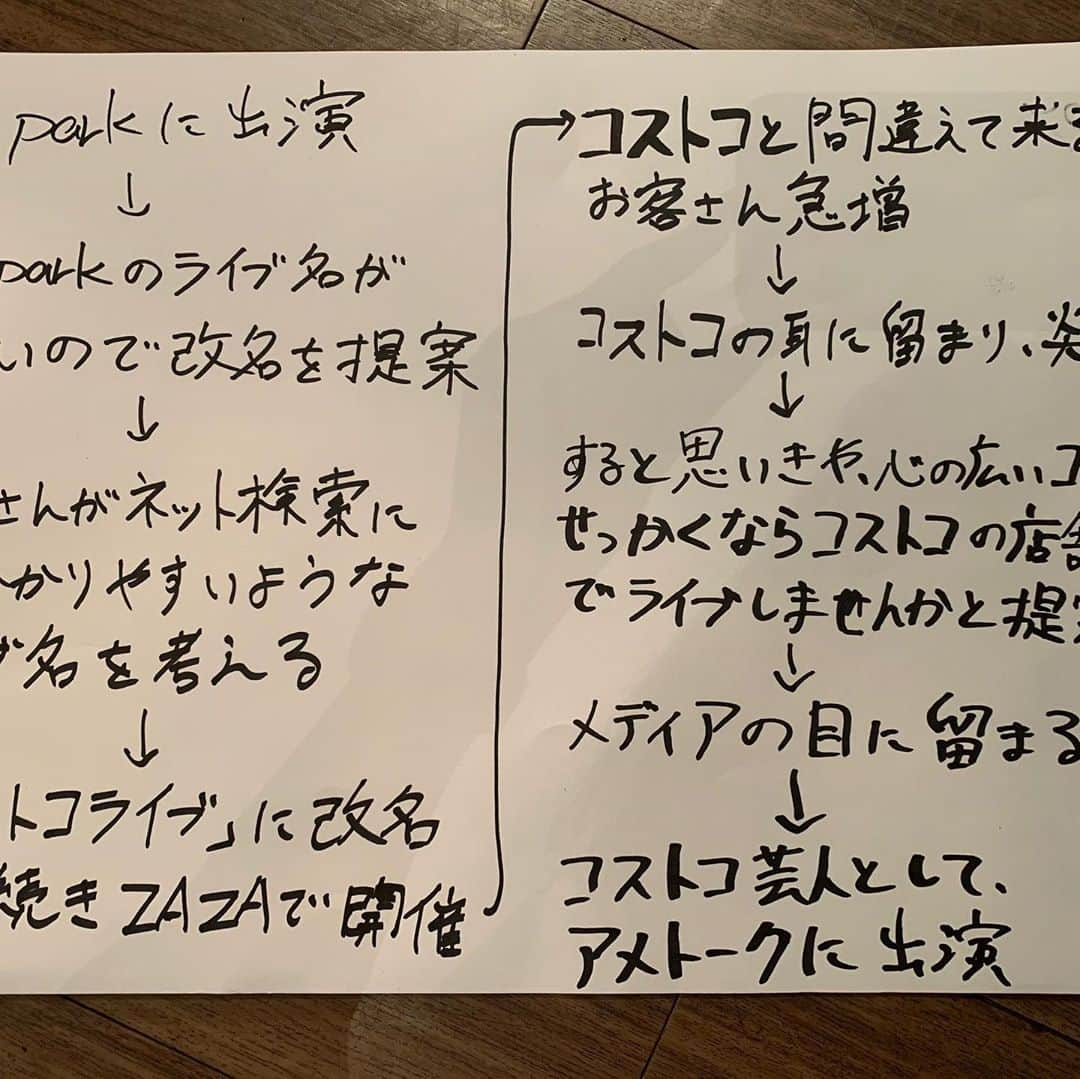 parkに出演
↓
parkのライブ名が
いので改名を提案
↓
さんがネット検索に
かりやすいような
名を考える
↓
トコライブ」に改名
続きZAZAで開催
→コストコと間違えて来
お客さん急増
↓
コストコの耳に留まり、
↓
すると思いきや、心の広いコ
せっかくならコストコの店舗
でライブしませんかと提案
↓
メディアの目に留まる
↓
コストコ芸人として、
アメトークに出演